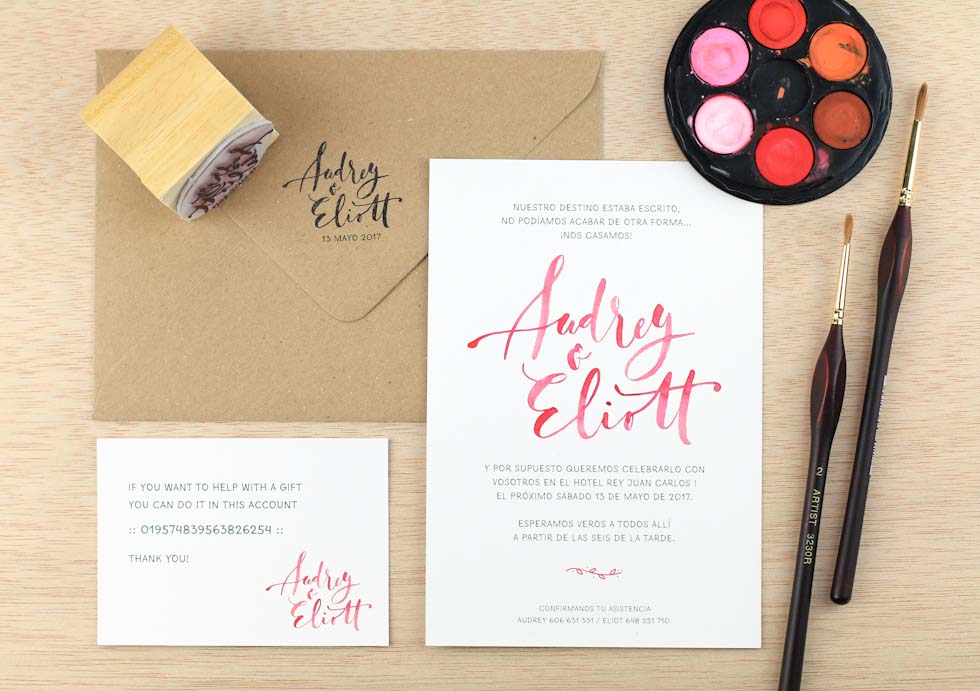 Audrey
&
Eliott
13 MAYO 2017
NUESTRO DESTINO ESTABA ESCRITO,
NO PODÍAMOS ACABAR DE OTRA FORMA...
¡NOS CASAMOS!
Audrey
&
Eliott
Y POR SUPUESTO QUEREMOS CELEBRARLO CON
VOSOTROS EN EL HOTEL REY JUAN CARLOS I
EL PRÓXIMO SÁBADO 13 DE MAYO DE 2017.
ESPERAMOS VEROS A TODOS ALLÍ
A PARTIR DE LAS SEIS DE LA TARDE.
CONFIRMANOS TU ASISTENCIA
AUDREY 606 631 331 / ELIOT 648 251 710
IF YOU WANT TO HELP WITH A GIFT
YOU CAN DO IT IN THIS ACCOUNT
:: 019574839563826254 ::
THANK YOU!
Audrey
&
Eliott
2 ARTIST 3230R